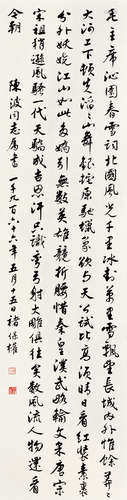 毛主席沁園春雪詞北國風光千里冰封萬里雪飄望長城內外惟餘莽〻
大河上下頓失滔〻山舞銀蛇原馳蠟象欲與天公試比高須晴日看紅裝素裹
分外妖嬈江山如此多嬌引無數英雄競折腰惜秦皇漢武略輸文采唐宗
宋祖稍遜風騷一代天驕成吉思汗只識彎弓射大雕俱往矣數風流人物還看
今朝 陳波同志屬書 一千九百八十六年五月十五日 褚保權